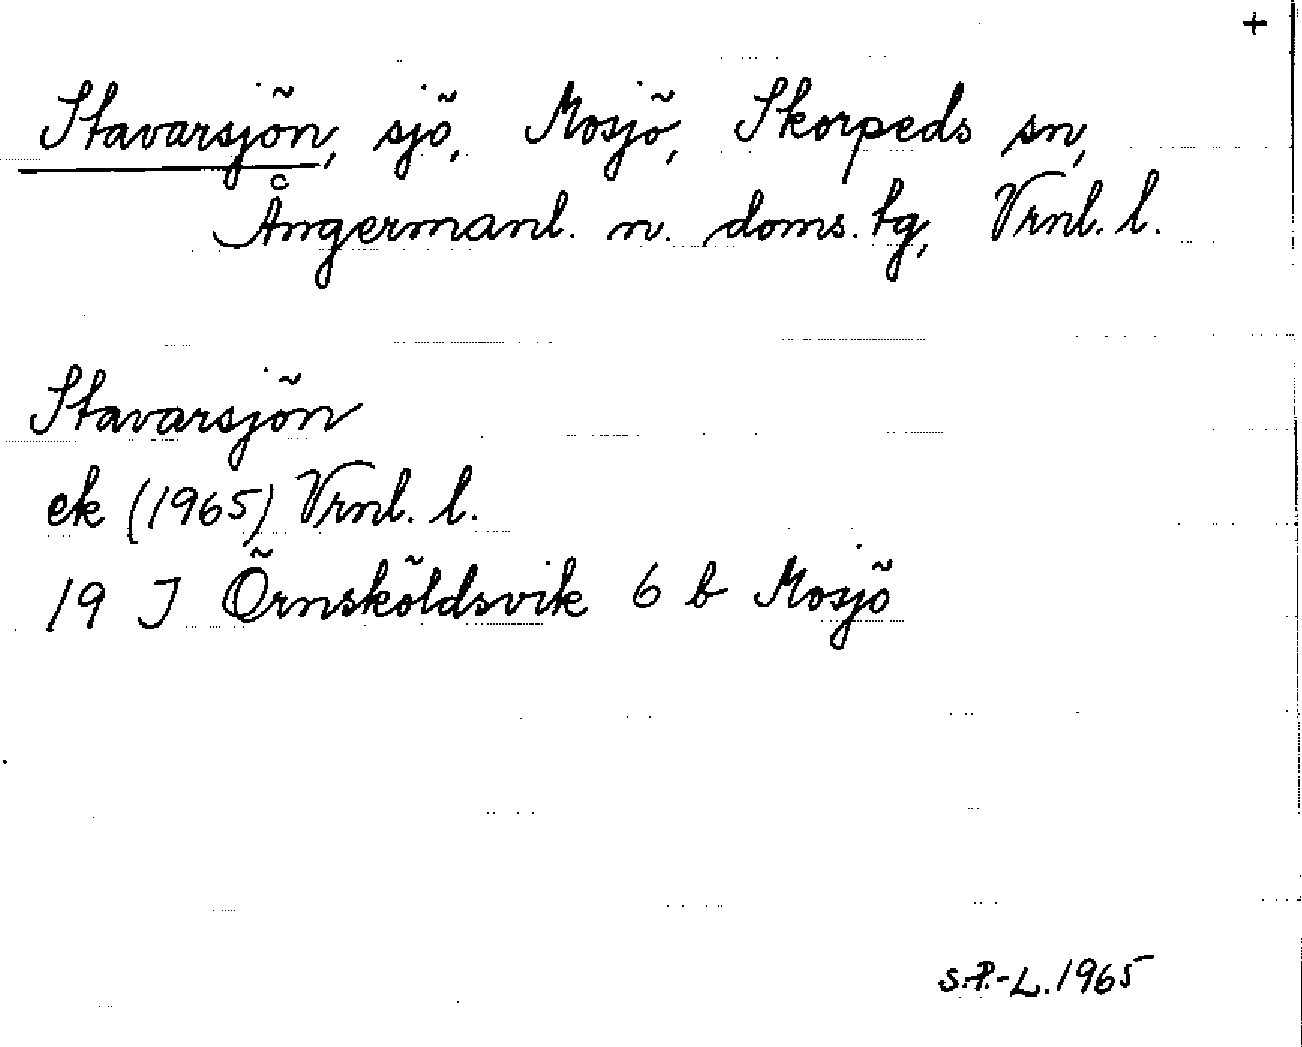 +
Stavarsjön, sjö, Mosjö, Skorpeds sn,
Ångermanl. n. doms. tg, Vrnl. l.
Stavarsjön
ek (1965) Vrnl. l.
19 J Örnsköldsvik 6 b Mosjö
S.P.-L. 1965